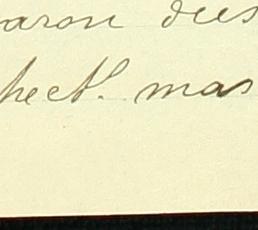 aron dies
hect. mas